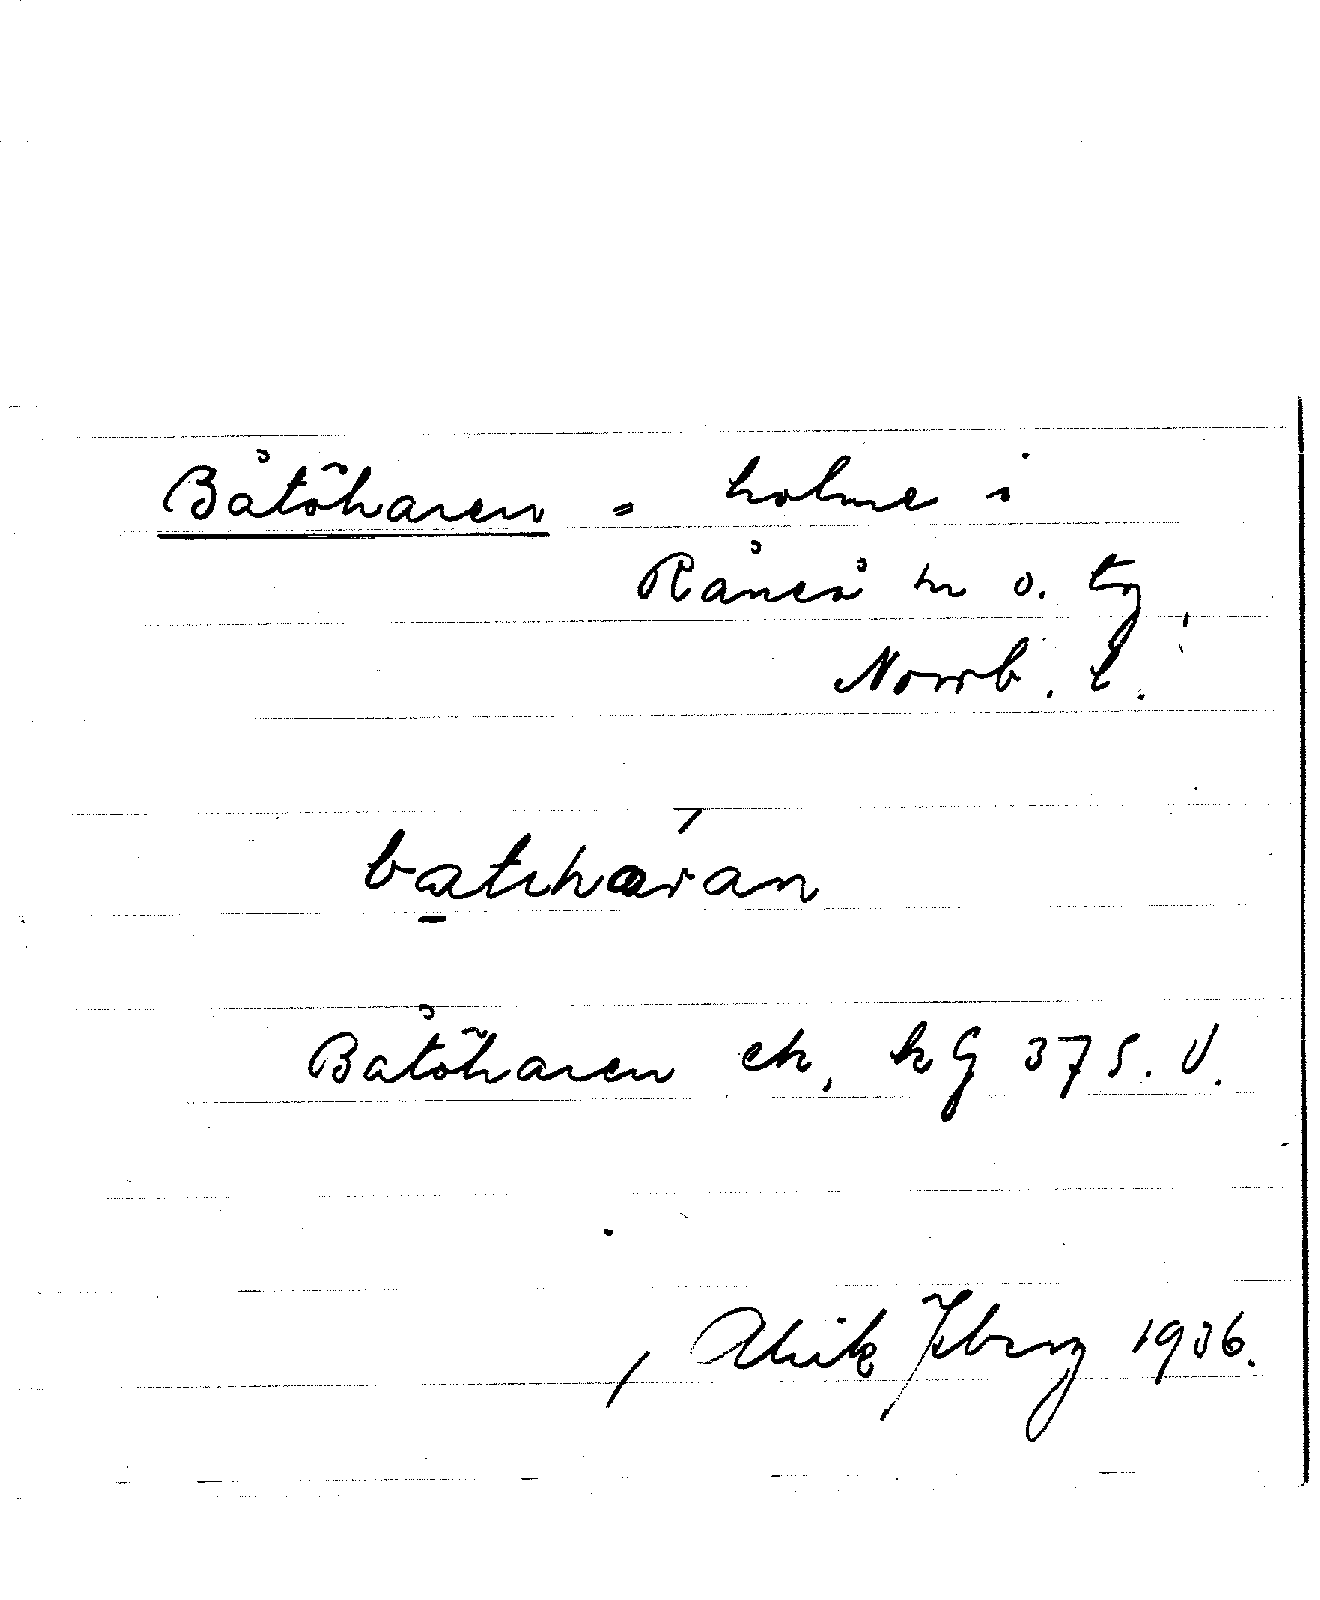 Båtöharen = holme i
Råneå sn o. tg,
Norrb. l.
batɩharan
Båtöharen ek, kG 37 S.V.
Ulrik Zberg 1936.